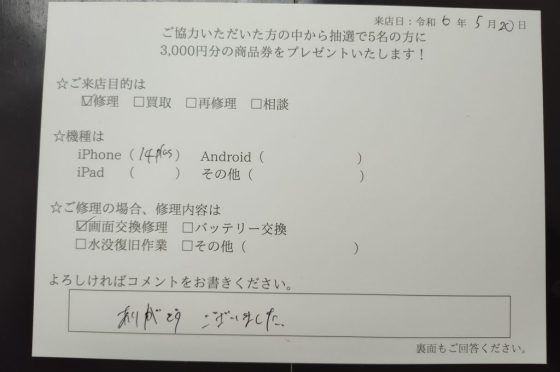 来店日：令和 6 年 5 月 20 日
ご協力いただいた方の中から抽選で5名の方に
3,000円分の商品券をプレゼントいたします！
☆ご来店目的は
☑修理 □買取 □再修理 □相談
☆機種は
iPhone（14plus） Android（ ）
iPad （ ） その他（ ）
☆ご修理の場合、修理内容は
☑画面交換修理 □バッテリー交換
□水没復旧作業 □その他（ ）
よろしければコメントをお書きください。
ありがとう ございました
裏面もご回答ください。